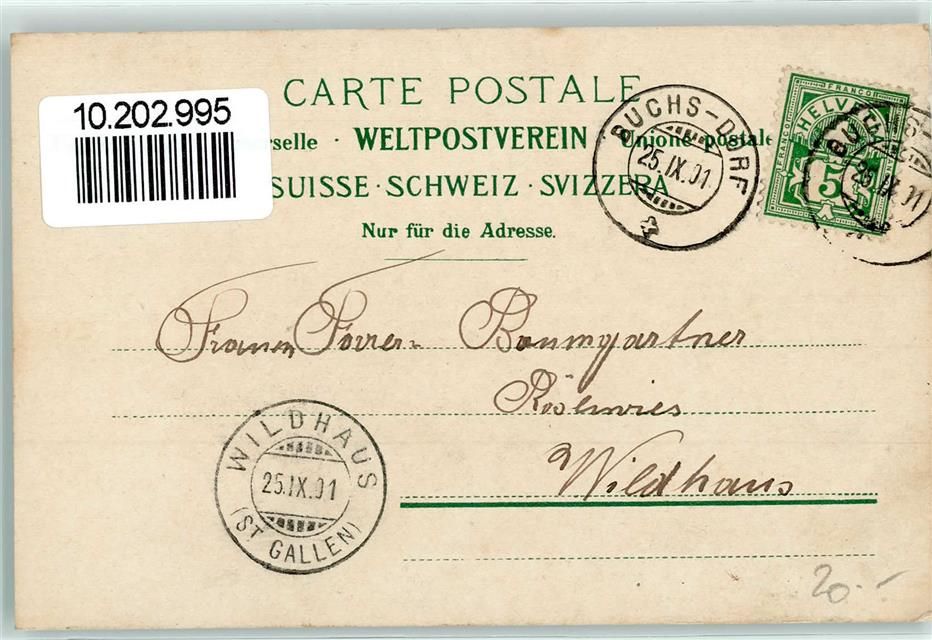 CARTE POSTALE
10.202.995
rselle · WELTPOSTVEREIN · Unione postale
SUISSE · SCHWEIZ · SVIZZERA
Nur für die Adresse.
BUCHS-DORF
25.IX.01
FRANCO
HELVETIA
FRANCO
5
25.IX.01
Forrer- Baumgartner
Wildhaus
WILDHAUS
25.IX.01
(ST GALLEN)
20.-